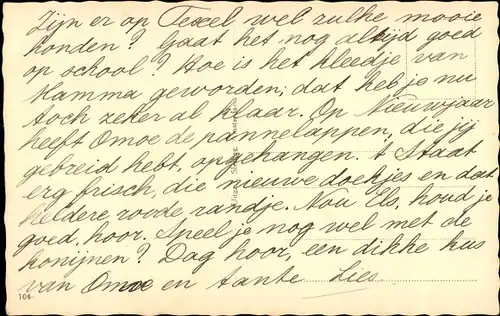 Zijn er op Texel wel zulke mooie
honden? Gaat het nog altijd goed
op school? Hoe is het kleedje van
Mamma geworden; dat heb je nu
toch zeker al klaar. Op Nieuwjaar
heeft Omoe de pannelappen, die jij
gebreid hebt, opgehangen. 't Staat
erg frisch, die nieuwe doekjes en dat
heldere roode randje. Nou Els, houd je
goed, hoor. Speel je nog wel met de
konijnen? Dag hoor, een dikke kus
van Omoe en tante Lies.
104